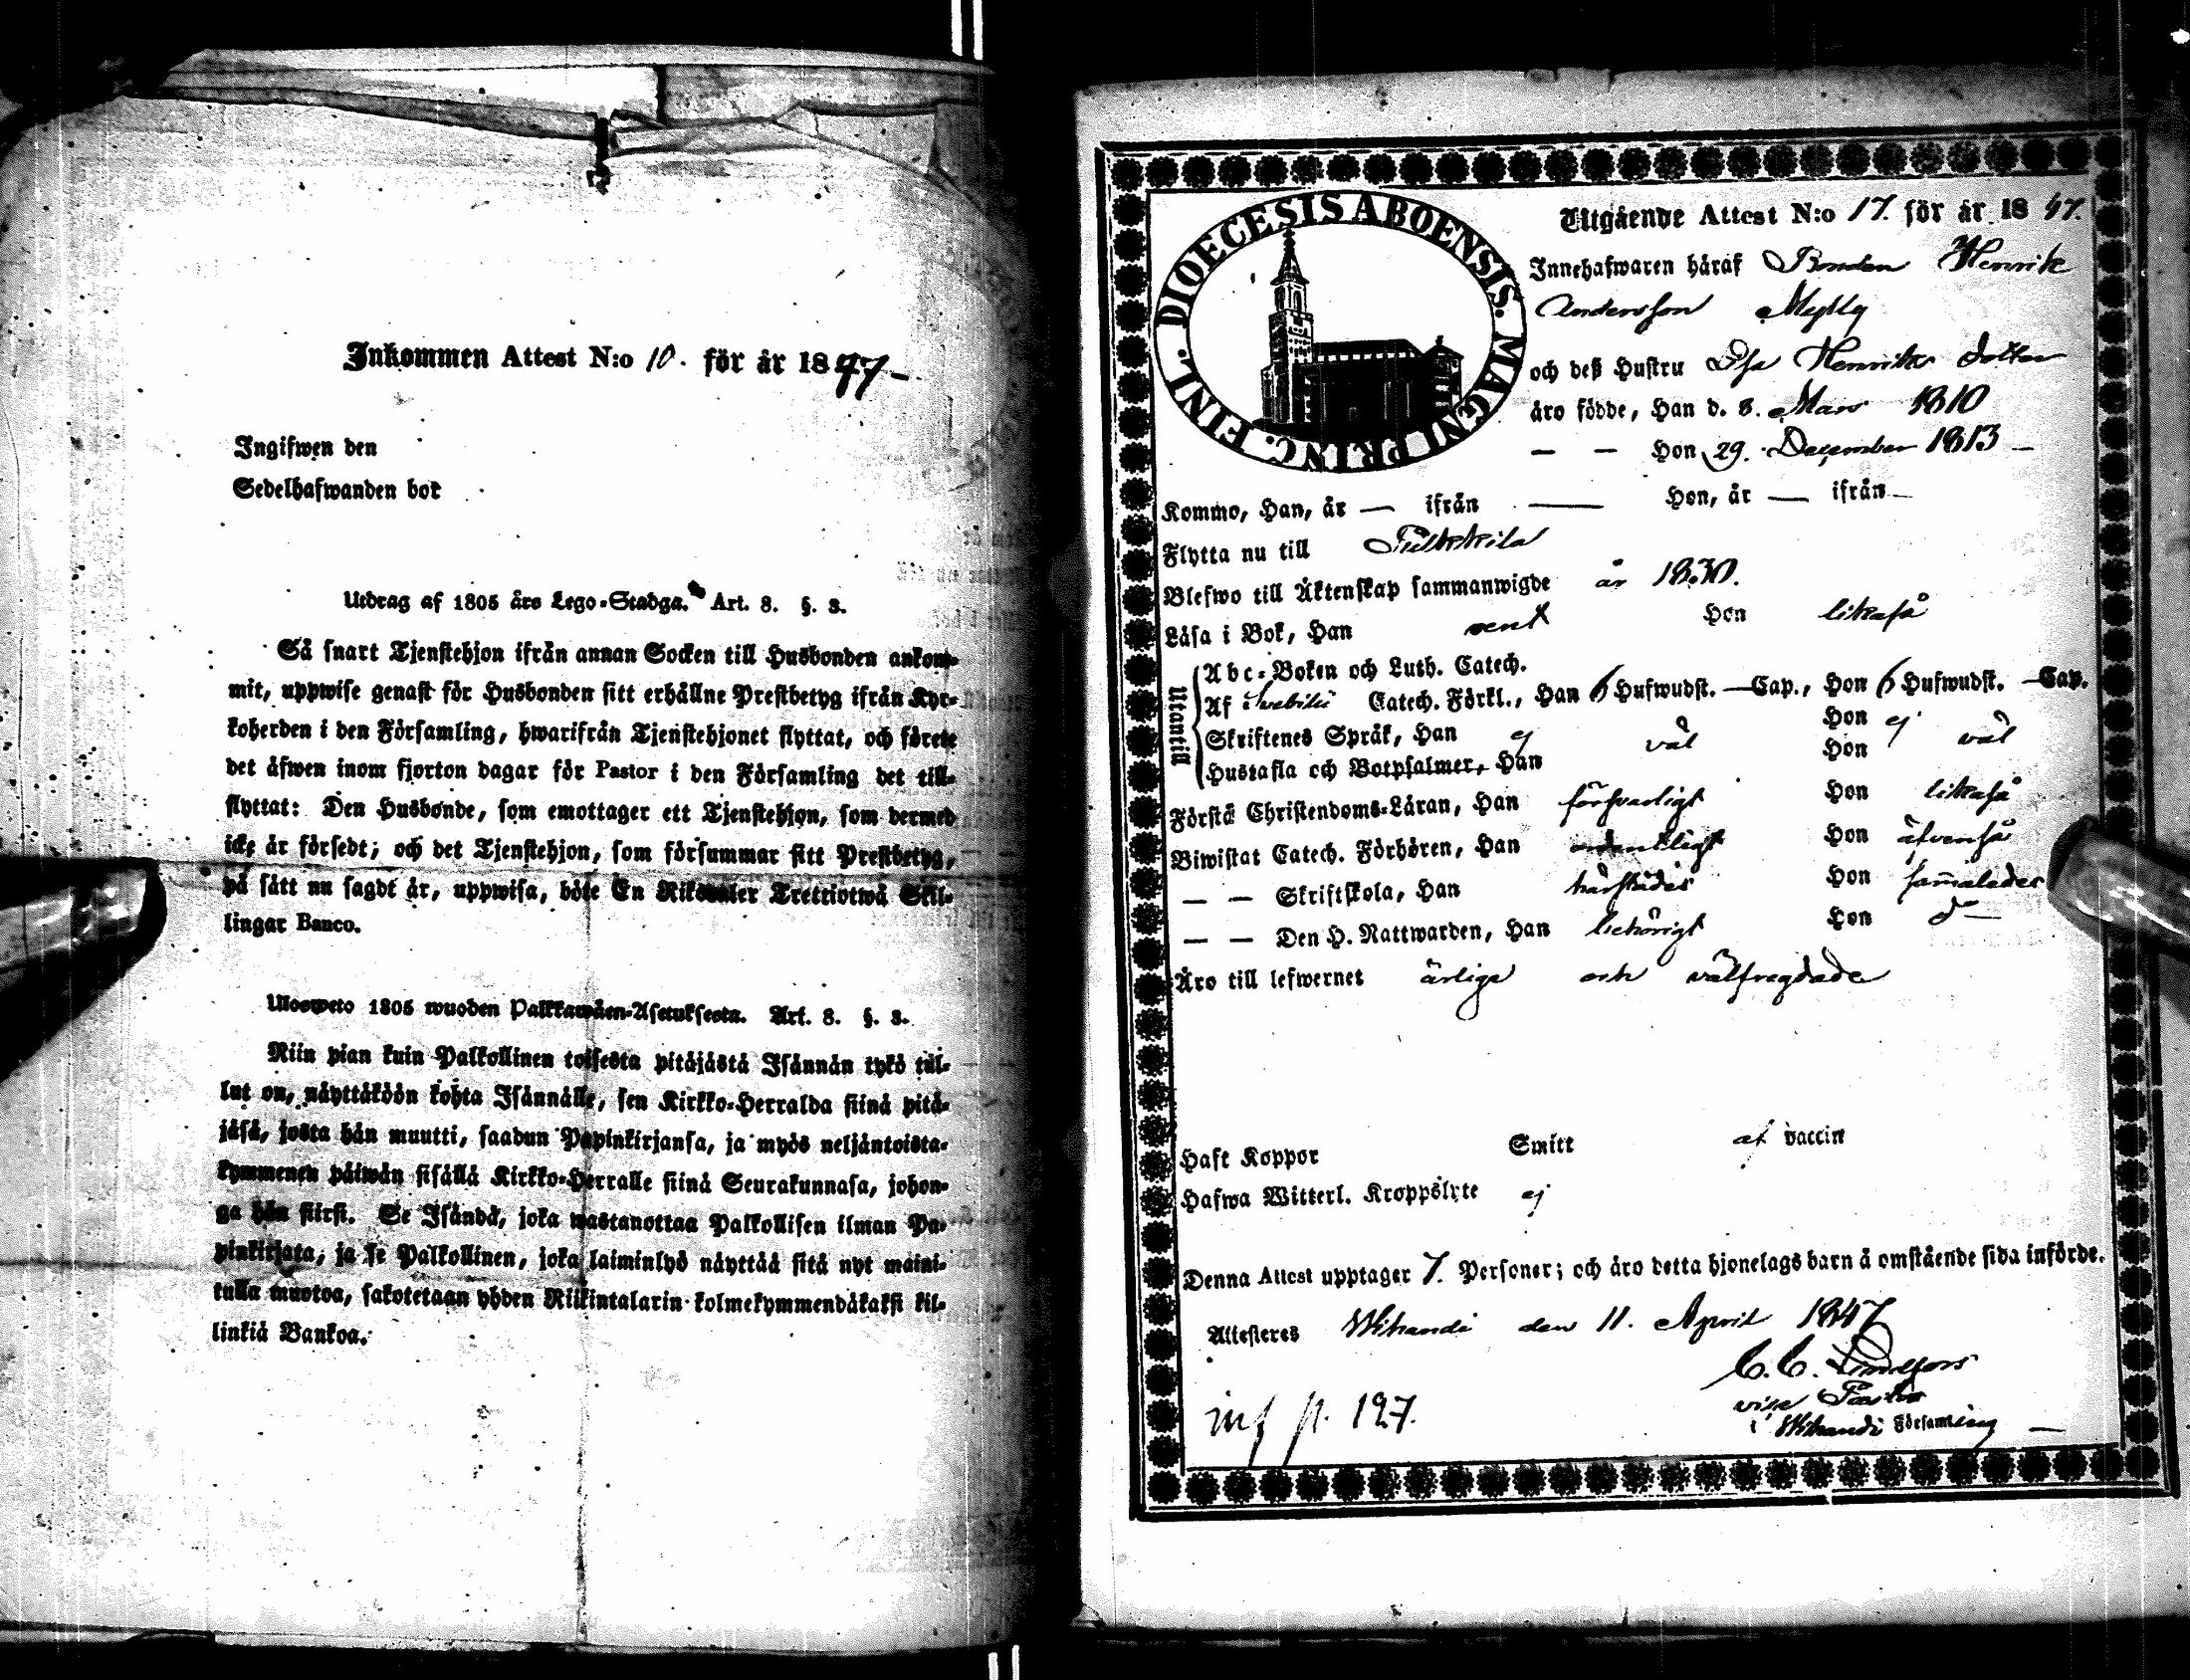 Inkommen Attest N:o 10. för år 1847
Ingifwen den
Sedelhafwanden bor
Utdrag af 1805 års Lego-Stadga. Art. 8. §. 3.
Så snart Tjenstehjon ifrån annan Socken till Husbonden ankom-
mit, uppwise genast för Husbonden sitt erhållne Prestbetyg ifrån Kyr-
koherden i den Församling, hwarifrån Tjenstehjonet flyttat, och förete
det äfwen inom fjorton dagar för Pastor i den Församling det till-
flyttat: Den Husbonde, som emottager ett Tjenstehjon, som dermed
icke är försedt; och det Tjenstehjon, som försummar sitt Prestbetyg,
på sätt nu sagdt är, uppwisa, böte En Riksdaler Trettiotwå Skil-
lingar Banco.
Ulosweto 1805 wuoden Palkkawäen-Asetuksesta. Art. 8. §. 3.
Niin pian kuin Palkollinen toisesta pitäjästä Isännän tykö tul-
lut on, näyttäköön kohta Isännälle, sen Kirkko-Herralda siinä pitä-
jäsä, josta hän muutti, saadun Papinkirjansa, ja myös neljäntoista-
kymmenen päiwän sisällä Kirkko-Herralle siinä Seurakunnasa, johon-
ga hän siirsi. Se Isändä, joka wastanottaa Palkollisen ilman Pa-
pinkirjata, ja se Palkollinen, joka laiminlyö näyttää sitä nyt maini-
tulla muotoa, sakotetaan yhden Riikintalarin kolmekymmendäkaksi kil-
linkiä Bankoa.
DIOECESIS ABOENSIS. MAGNI PRINC. FINL.
Utgående Attest N:o 17. för år 1847.
Innehafwaren häraf Bonden Henrik
Andersson Mylly
och deß Hustru Lisa Henriks dotter
äro födde, Han d. 8. Mars 1810
— — Hon 29. December 1813 —
Kommo, Han, år — ifrån — Hon, år — ifrån —
Flytta nu till Pulkkila
Blefwo till Äktenskap sammanwigde år 1830.
Läsa i Bok, Han rent Hon likaså
Utantill
Abc-Boken och Luth. Catech.
Af Svebilii Catech. Förkl., Han 6 Hufwudst. — Cap., Hon 6 Hufwudst. — Cap.
Skriftenes Språk, Han ej Hon ej
Hustafla och Botpsalmer, Han väl Hon väl
Förstå Christendoms-Läran, Han försvarligt Hon likaså
Biwistat Catech. Förhören, Han ordentligt Hon äfvenså
— — Skriftskola, Han härstädes Hon sam̄alades
— — Den H. Nattwarden, Han behörigt Hon d° —
Äro till lefwernet ärliga och välfregdade
Haft Koppor Smitt af vaccin
Hafwa Witterl. Kroppslyte ej
Denna Attest upptager 7. Personer; och äro detta hjonelags barn å omstående sida införde.
Attesteres Wihandi den 11. April 1847
C. C. Lindfors
vice Pastor
i Wihandi Församling —
inf p. 127.